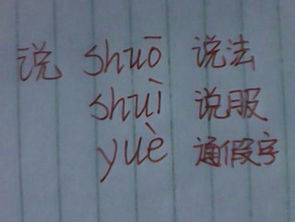 说 shuō 说法
shuì 说服
yuè 通假字